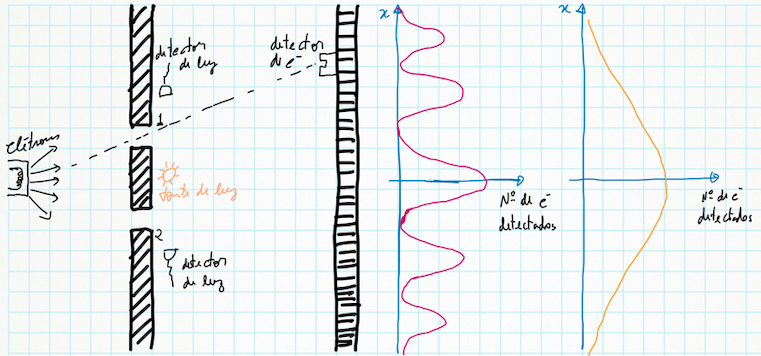 detector
de luz
1
elétrons
fonte de luz
2
detector
de luz
detector
de e⁻
x
Nº de e⁻
detectados
x
Nº de e⁻
detectados